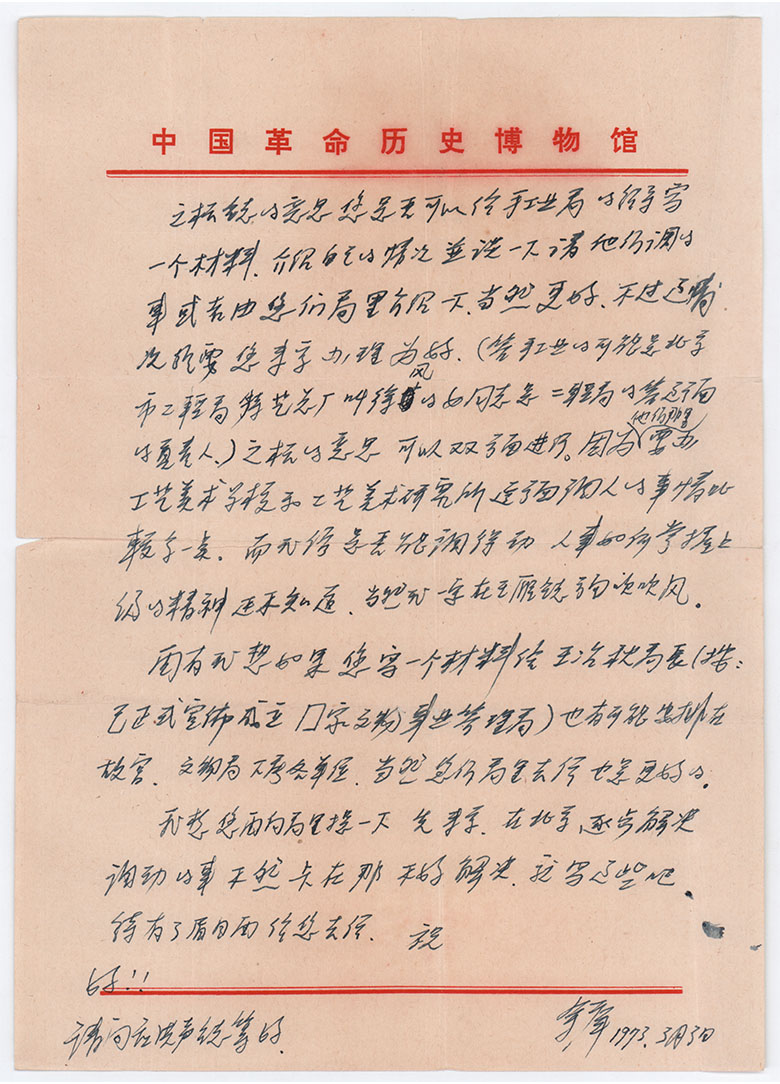 中国革命历史博物馆
之桓铥的意思您是否可以给手工业局的领导写
一个材料，介绍自己的情况並谈一下请他们调的
事或者由您们局里介绍一下当然更好，不过这情
况能要您来京办理为好，（管手工业的可能是北京
风
市二轻局特艺总厂叫徐 的女同志是二轻局的管这方面
他们那里
的负责人。）之桓的意思可以双方面进行。因为 要办
工艺美术学校和工艺美术研究所这方面调人的事情比
较多一点，而无论是否能调得动人事如何掌握上
级的精神还不知道，当然我一定在王 方面吹吹风。
还有我想如果您写一个材料给王冶秋局长（按：
已正式宣佈成立国家文物事业管理局）也有可能安排在
故宫、文物局下属各单位，当然您们局里去信也是更好的。
我想您再向局里提一下先来京，在北京逐步解决
调动的事不然卡在那不好解决，就写这些吧
待有了眉目再给您去信。 祝
好！！
请问 等好。
1973.3月3日